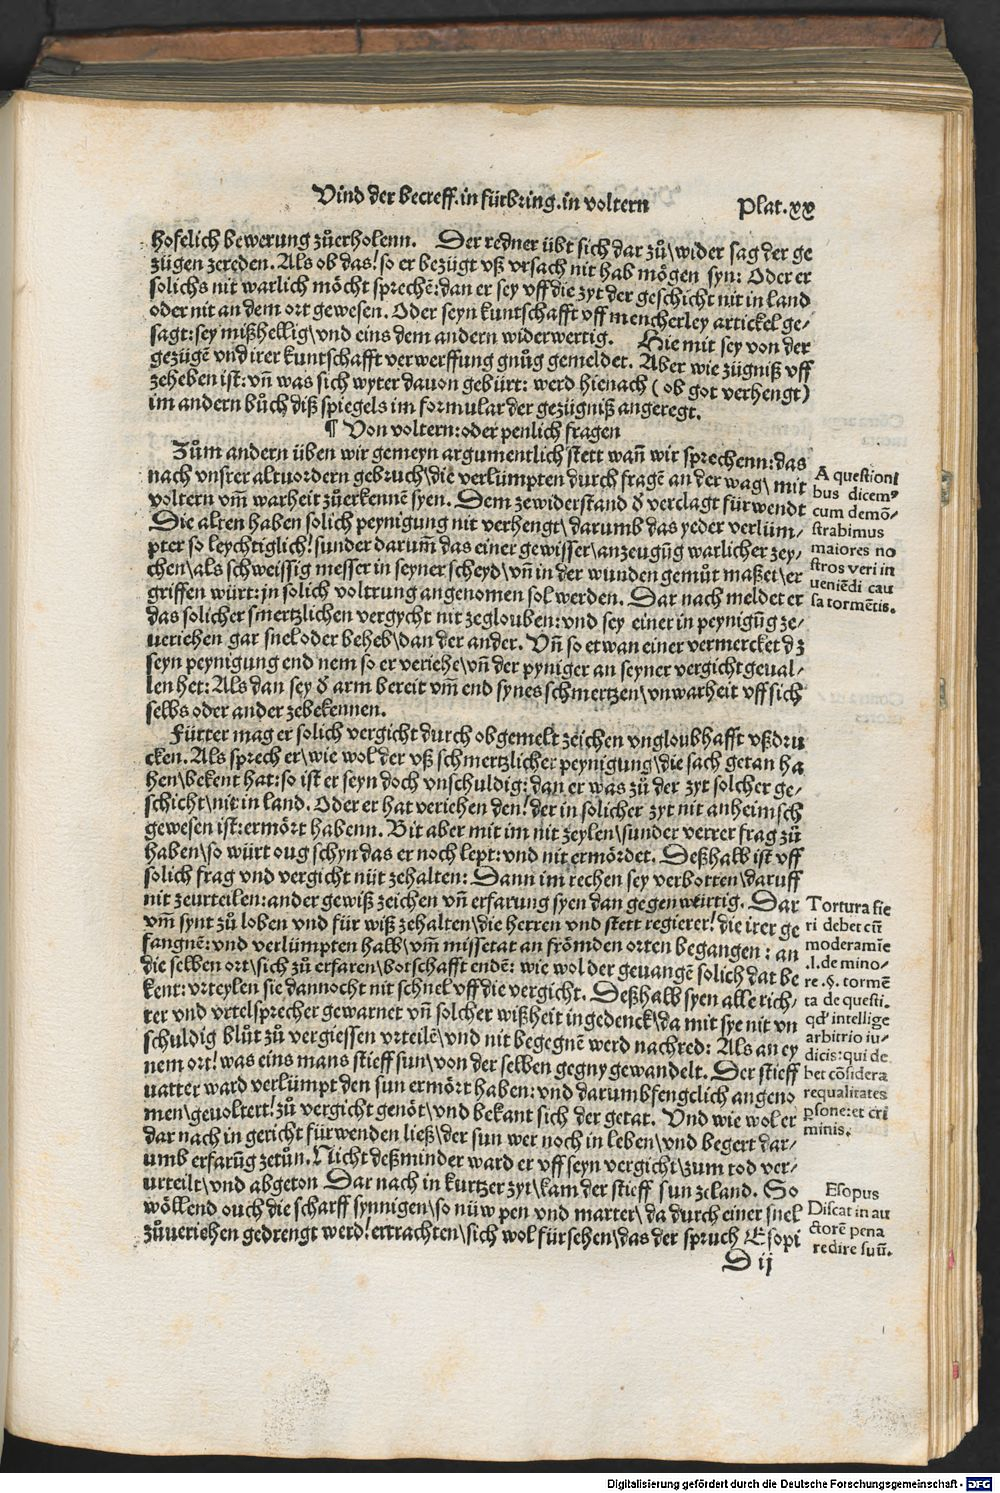 Vind der betreff. in fürbring. in voltern
Plat. xx
hofelich bewerung zůerholenn. Der redner übt sich dar zů\wider sag der ge
zügen zereden. Als ob das! so er bezügt vß vrsach nit hab mögen syn: Oder er
solichs nit warlich möcht sprechē: dan er sey vff die zyt der geschicht nit in land
oder nit an dem ort gewesen. Oder seyn kuntschafft vff mencherley artickel ge-
sagt: sey mißhellig\vnd eins dem andern widerwertig. Hie mit sey von der
gezügē vnd irer kuntschafft verwerffung gnůg gemeldet. Aber wie zügniß vff
zeheben ist: vñ was sich wyter dauon gebürt: werd hienach (ob got verhengt)
im andern bůch diß spiegels im formular der gezügniß angeregt.
¶ Von voltern: oder penlich fragen
Zům andern üben wir gemeyn argumentlich stett wañ wir sprechenn: das
nach vnster altuordern gebruch\die verlümpten durch fragē an der wag\ mit
voltern vm̃ warheit zůerkennē syen. Dem zewiderstand ď verclagt für wendt
Die alten haben solich peynigung nit verhengt\ darumb das yeder verlüm-
pter so leychtiglich! sunder darum̃ das einer gewisser\anzeugūg warlicher zey-
chen\als schweissig messer in seyner scheyd\vñ in der wunden gemůt maßet\er
griffen würt: jn solich voltrung angenomen sol werden. Dar nach meldet er
das solicher smertzlichen vergycht nit zeglouben: vnd sey einer in peynigūg ze-
ueriehen gar snel oder beheb\dan der ander. Vñ so etwan einer vermercket dz
seyn peynigung end nem so er veriehe\vñ der pyniger an seyner vergicht geual-
len het: Als dan sey ď arm bereit vm̃ end synes schmertzen\vnwarheit vff sich
selbs oder ander zebekennen.
Fürter mag er solich vergicht durch obgemelt zeichen vngloubhafft vßdru
cken. Als sprech er\wie wol der vß schmertzlicher peynigung\die sach getan ha
hen\bekent hat: so ist er seyn doch vnschuldig: dan er was zů der zyt solcher ge-
schicht\nit in land. Oder er hat veriehen den! der in solicher zyt nit anheimsch
gewesen ist: ermört habenn. Bit aber mit im nit zeylen\sunder verrer frag zů
haben\so würt oug schyn das er noch lept: vnd nit ermördet. Deßhalb ist vff
solich frag vnd vergicht nüt zehalten: Dann im rechen sey verbotten\daruff
nit zeurteilen: ander gewiß zeichen vñ erfarung syen dan gegenwürtig. Dar
vm̃ synt zů loben vnd für wiß zehalten\die herren vnd stett regierer! die irer ge
fangnē: vnd verlümpten halb\vm̃ missetat an frömden orten begangen: an
die selben ort\sich zů erfaren\botschafft endē: wie wol der geuangē solich dat be
kent: vrteylen sie dannocht nit schnel vff die vergicht. Deßhalb syen alle rich-
ter vnd vrtelsprecher gewarnet vñ solcher wißheit ingedenck\da mit sye nit vn
schuldig blůt zů vergiessen vrteilē\vnd nit begegnē werd nachred: Als an ey
nem ort! was eins mans stieff sun\von der selben gegny gewandelt. Der stieff
uatter ward verlümpt den sun ermört haben: vnd darumb fengclich angeno
men\geuoltert! zů vergicht genöt\vnd bekant sich der getat. Vnd wie wol er
dar nach in gericht fürwenden ließ\der sun wer noch in leben\vnd begert dar-
umb erfarūg zetůn. Nicht deßminder ward er vff seyn vergicht\zum tod ver-
urteilt\vnd abgeton Dar nach in kurtzer zyt\kam der stieff sun zeland. So
wöllend ouch die scharff synnigen\so nüw pen vnd marter\ da durch einer snel
zůueriehen gedrengt werd! ertrachten\sich wol fürsehen\das der spruch Esopi
D ij
A questioni
bus dicemꝰ
cum demō-
strabimus
maiores no
stros veri in
ueniēdi cau
sa tormētis.
Tortura fie
ri debet cū
moderamīe
.l. de mino-
re .§. tormē
ta de questi.
qď intellige
arbitrio iu-
dicis: qui de
bet cōsidera
requalitates
ꝑsone: et cri
minis.
Esopus
Discat in au
ctorē pena
redire suū.
Digitalisierung gefördert durch die Deutsche Forschungsgemeinschaft - DFG